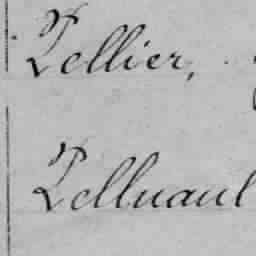 Pellier,
Pelluaul